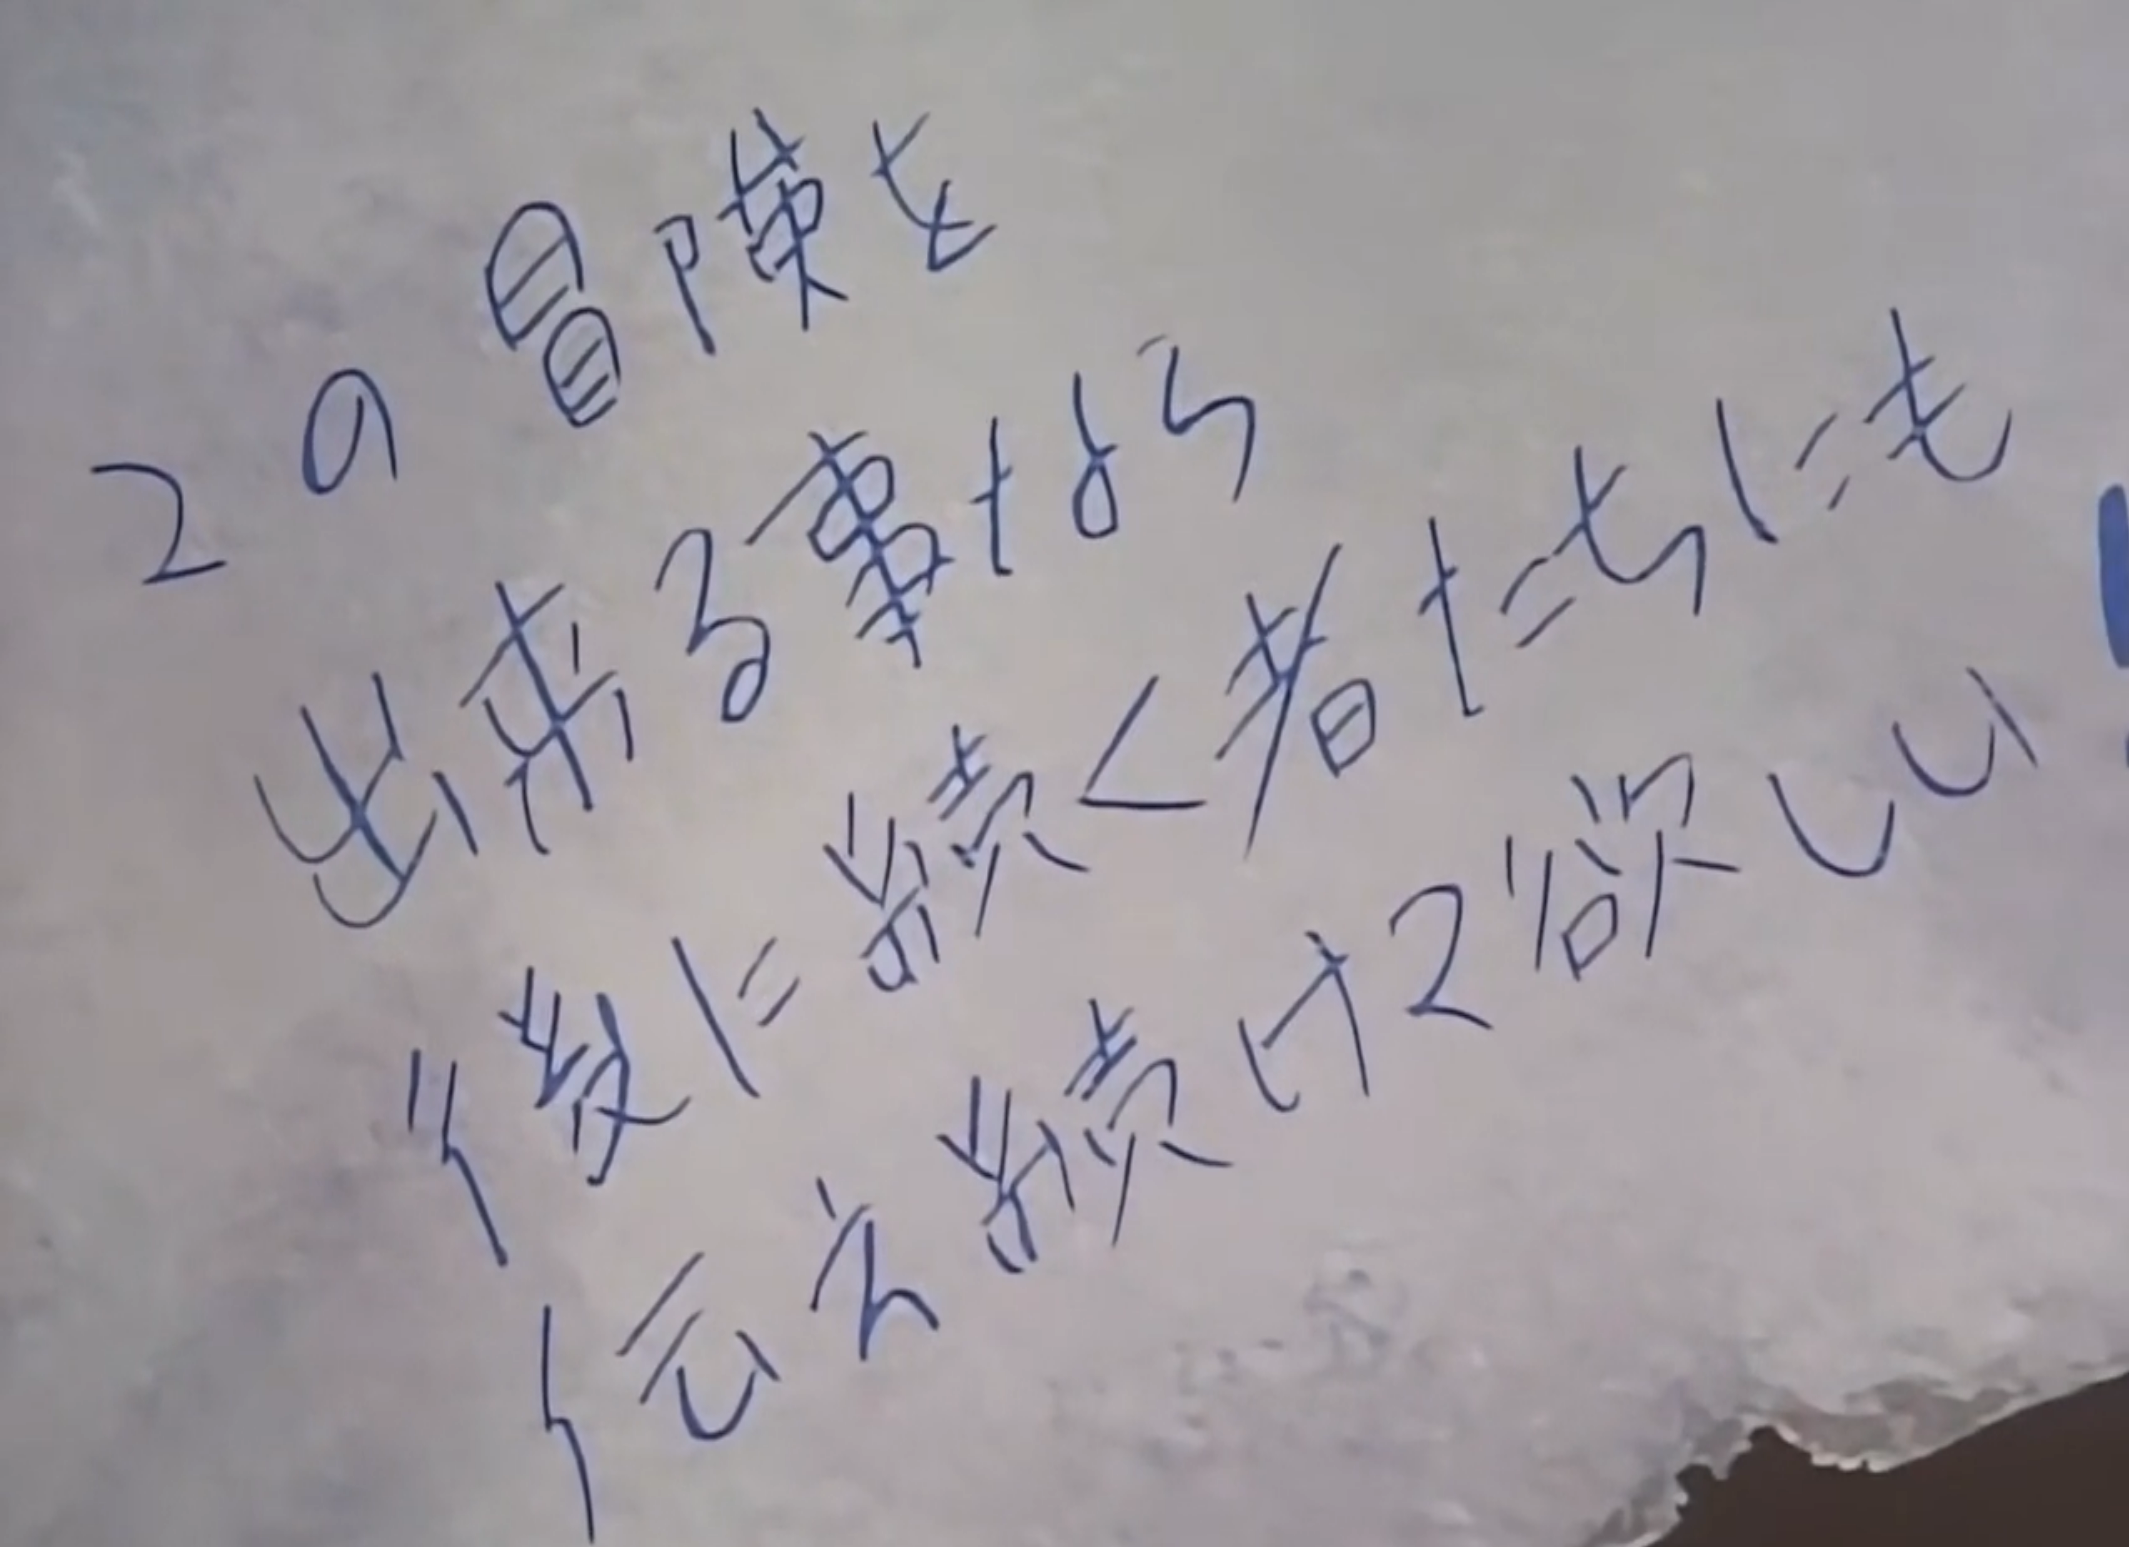 この冒険を
出来る事なら
後に続く者たちにも
伝え続けて欲しい